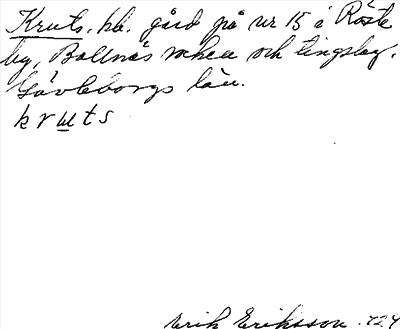 Kruts, hb. gård på nr 15 i Röste
by, Bollnäs socken och tingslag.
Gävleborgs län.
k r u t s
Erik Eriksson. 424